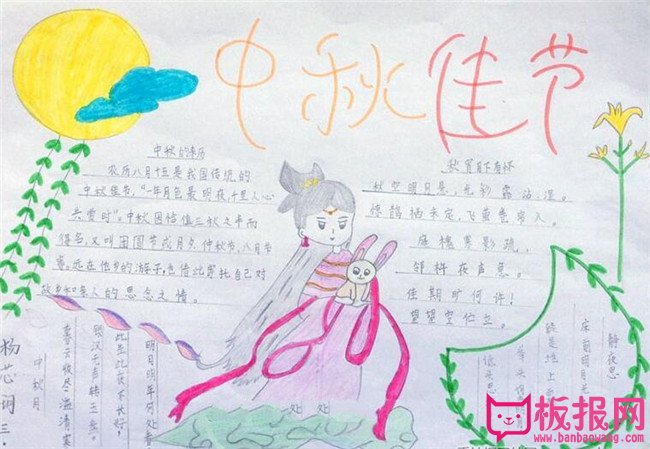 中秋佳节
中秋的来历
农历八月十五是我国传统的
中秋佳节。"一年月色最明夜千里人心
共赏时"。中秋因恰值三秋之半而
得名,又叫团圆节或月夕、仲秋节、八月节
等。远在他乡的游子,也借此寄托自己对
故乡和亲人的思念之情。
秋宵月下有怀
秋空明月悬,光彩露沾湿。
惊鹊栖未定,飞萤卷帘入。
庭槐寒影疏,
邻杵夜声急。
佳期旷何许!
望望空伫立。
中秋月
暮云收尽溢清寒
银汉无声转玉盘
此生此夜不长好
明月明年何处看
静夜思
床前明月光
疑是地上
举头
低头思
板报网
www.banbaowang.com